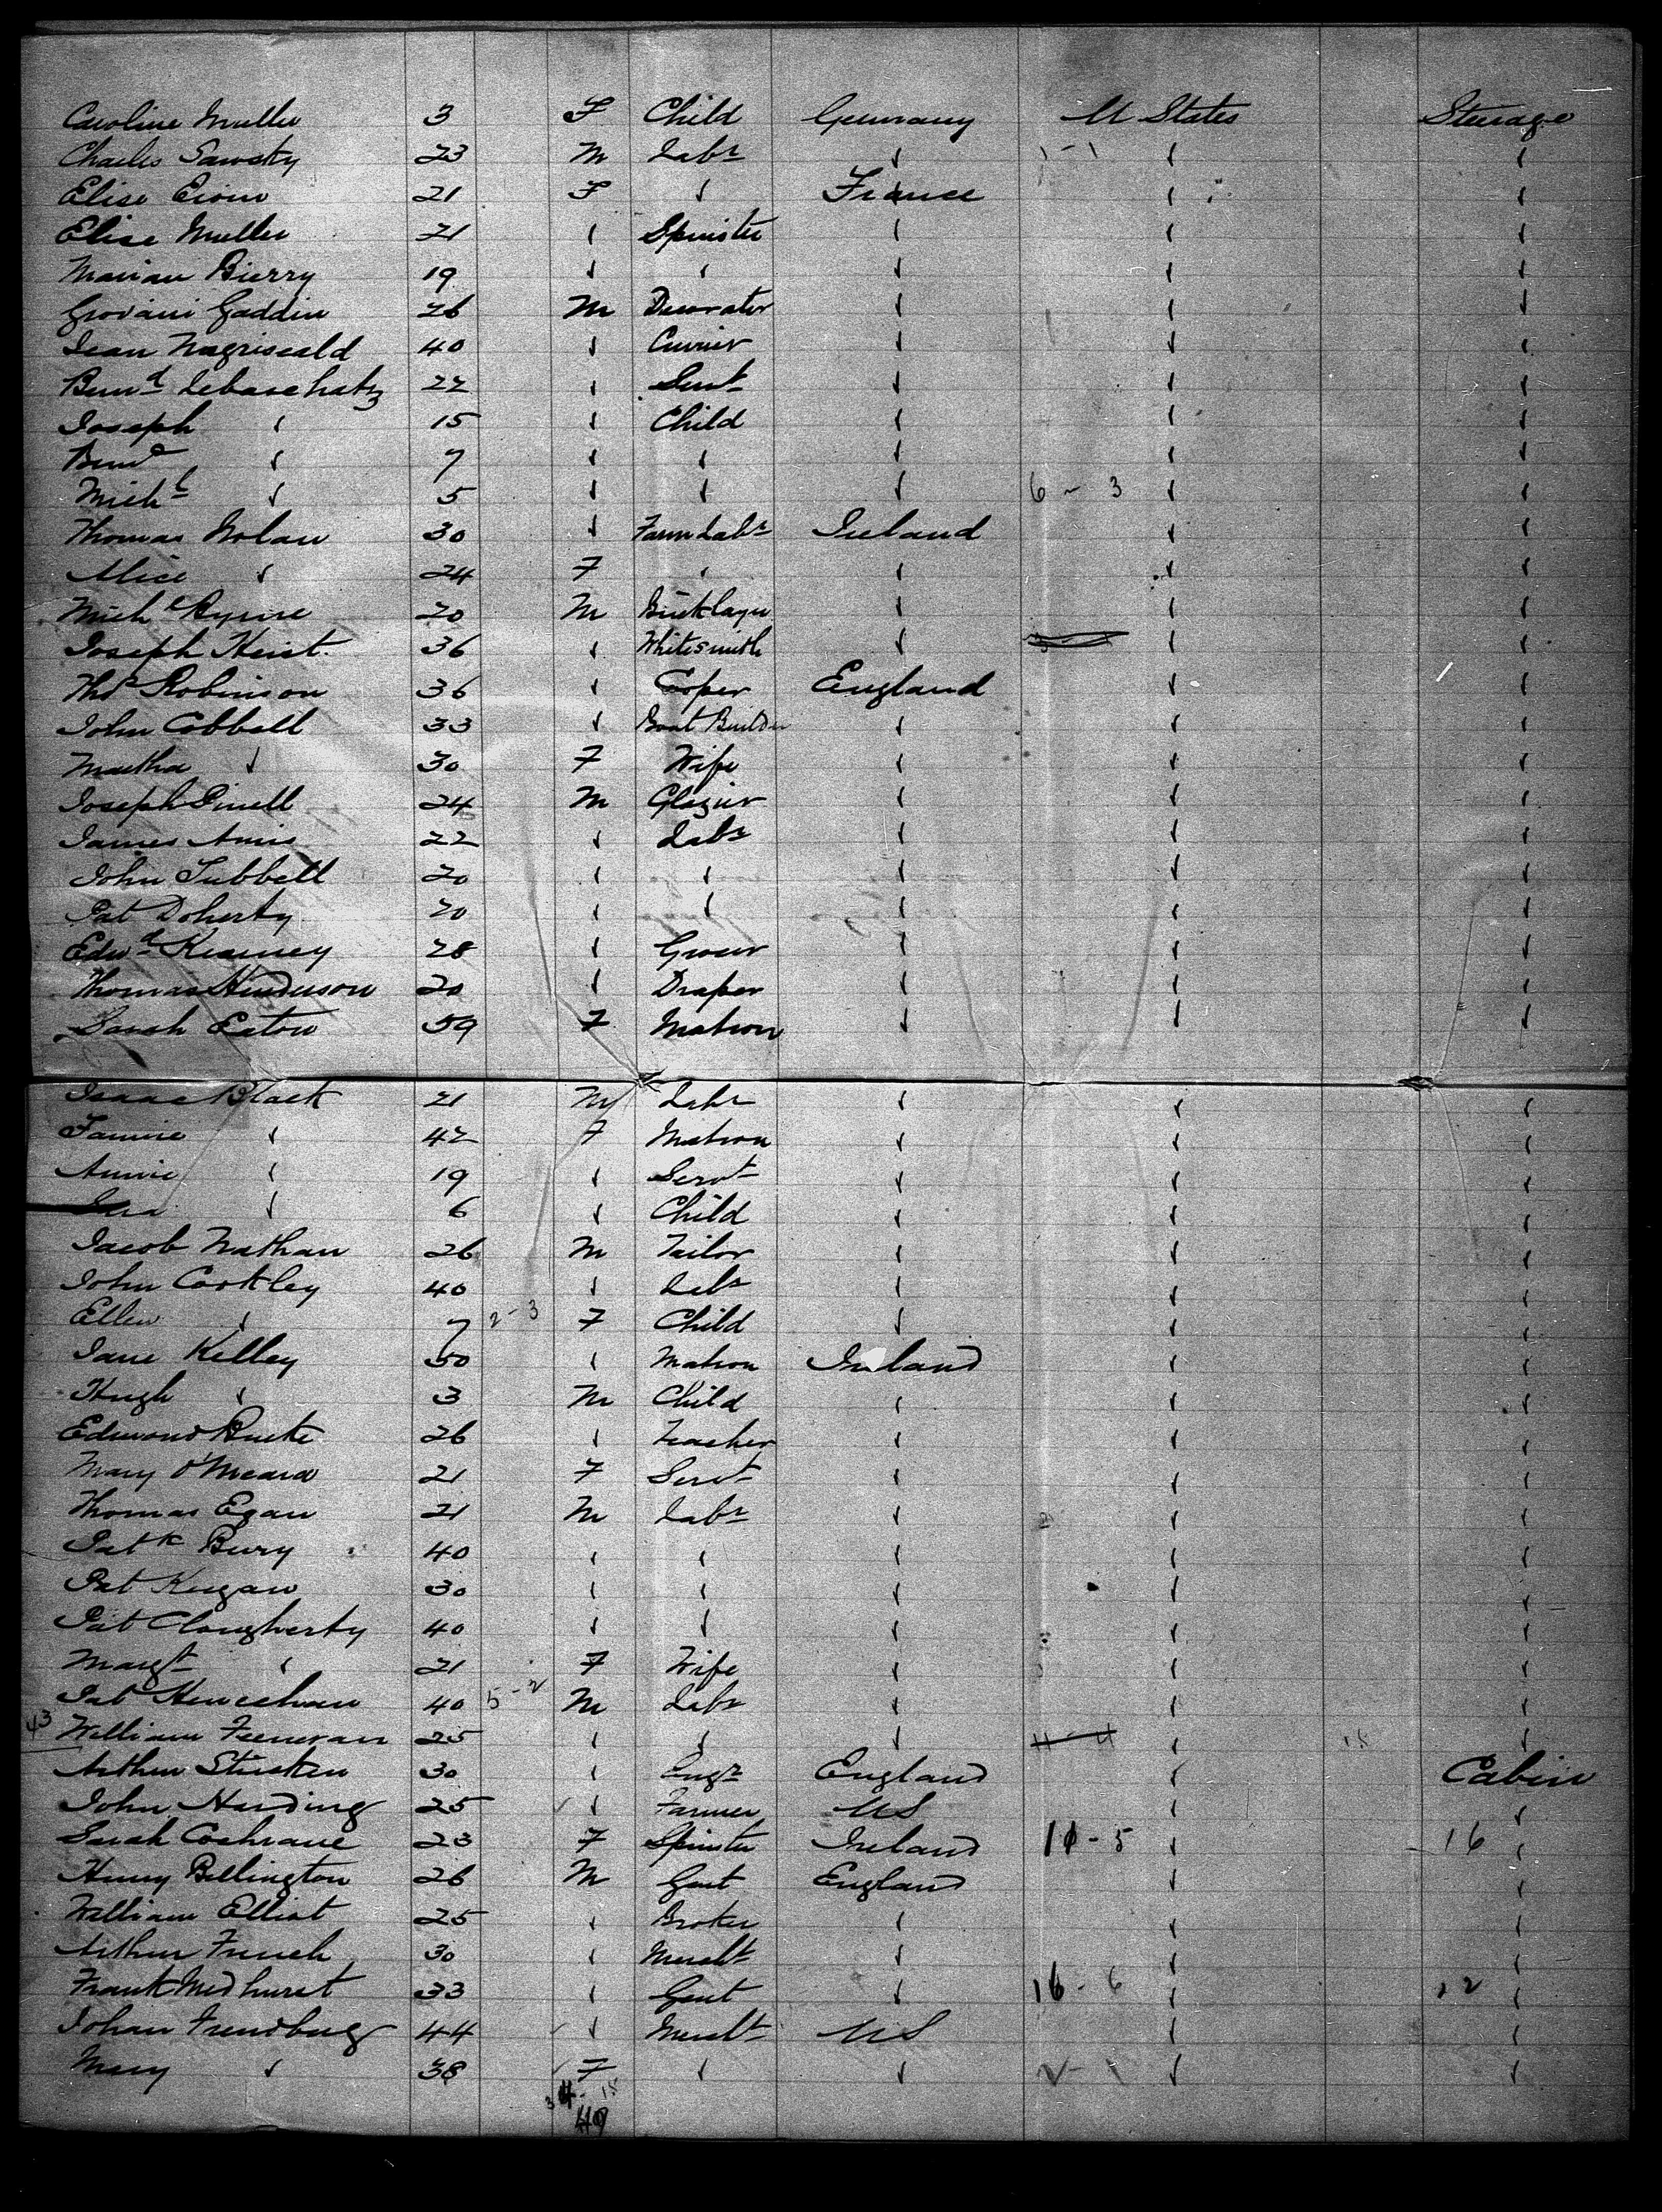 Caroline Muller 3 F Child Germany U States Steerage
Charles Sawsty 23 M Labr ✓ 1-1 ✓ ✓
Elise 21 F ✓ France ✓ ✓
Elise Muller 21 ✓ Spinster ✓ ✓ ✓
Marian Bierry 19 ✓ ✓ ✓ ✓ ✓
Giovani Gaddin 26 M Decorator ✓ ✓ ✓
Jean Nagriseald 40 ✓ Currier ✓ ✓ ✓
Bernd Lebaschatz 22 ✓ Servt ✓ ✓ ✓
Joseph ✓ 15 ✓ Child ✓ ✓ ✓
Bernd ✓ 7 ✓ ✓ ✓ ✓ ✓
Michl ✓ 5 ✓ ✓ ✓ 6-3 ✓ ✓
Thomas Nolan 30 ✓ Farm Labr Ireland ✓ ✓
Alice ✓ 24 F ✓ ✓ ✓ ✓
Michl Byrne 20 M Bricklayer ✓ ✓ ✓
Joseph Heist 36 ✓ Whitesmith ✓ ✓ ✓
Thos Robinson 36 ✓ Cooper England ✓ ✓
John Cobbell 33 ✓ Boat Builder ✓ ✓ ✓
Martha ✓ 30 F Wife ✓ ✓ ✓
Joseph Pinell 24 M Glazier ✓ ✓ ✓
James Amis 22 ✓ Labr ✓ ✓ ✓
John Tubbell 20 ✓ ✓ ✓ ✓ ✓
Pat Doherty 20 ✓ ✓ ✓ ✓ ✓
Edwd Kearney 28 ✓ Grocer ✓ ✓ ✓
Thomas Henderson 20 ✓ Draper ✓ ✓ ✓
Sarah Eaton 59 F Matron ✓ ✓ ✓
Isaac Black 21 M Labr ✓ ✓ ✓
Fannie ✓ 42 F Matron ✓ ✓ ✓
Annie ✓ 19 ✓ Servt ✓ ✓ ✓
✓ 6 ✓ Child ✓ ✓ ✓
Jacob Nathan 26 M Tailor ✓ ✓ ✓
John Corkley 40 ✓ Labr ✓ ✓ ✓
Ellen ✓ 7 2-3 F Child ✓ ✓ ✓
Jane Kelley 50 ✓ Matron Ireland ✓ ✓
Hugh ✓ 3 M Child ✓ ✓ ✓
Edmond Burke 26 ✓ Teacher ✓ ✓ ✓
Mary O'Meara 21 F Servt ✓ ✓ ✓
Thomas Egan 21 M Labr ✓ ✓ ✓
Patk Bury 40 ✓ ✓ ✓ ✓ ✓
Pat Keegan 30 ✓ ✓ ✓ ✓ ✓
Pat Clougherty 40 ✓ ✓ ✓ ✓ ✓
Margt ✓ 21 F Wife ✓ ✓ ✓
Pat Heneehan 40 5-2 M Labr ✓ ✓ ✓
43 William Feeneran 25 ✓ ✓ ✓ 11-4 ✓ 15 ✓
Arthur Sturken 30 ✓ Engr England ✓ Cabin
John Harding 25 ✓ Farmer US ✓ ✓
Sarah Cochrane 23 F Spinster Ireland 11-5 ✓ 16 ✓
Henry Bellington 26 M Gent England ✓ ✓
William Elliot 25 ✓ Broker ✓ ✓ ✓
Arthur French 30 ✓ Mercht ✓ ✓ ✓
Frank Medhurst 33 ✓ Gent ✓ 16-6 ✓ 22 ✓
Johan Frendburg 44 ✓ Mercht US ✓ ✓
Mary ✓ 38 F ✓ ✓ 2-1 ✓ ✓
34-15
49